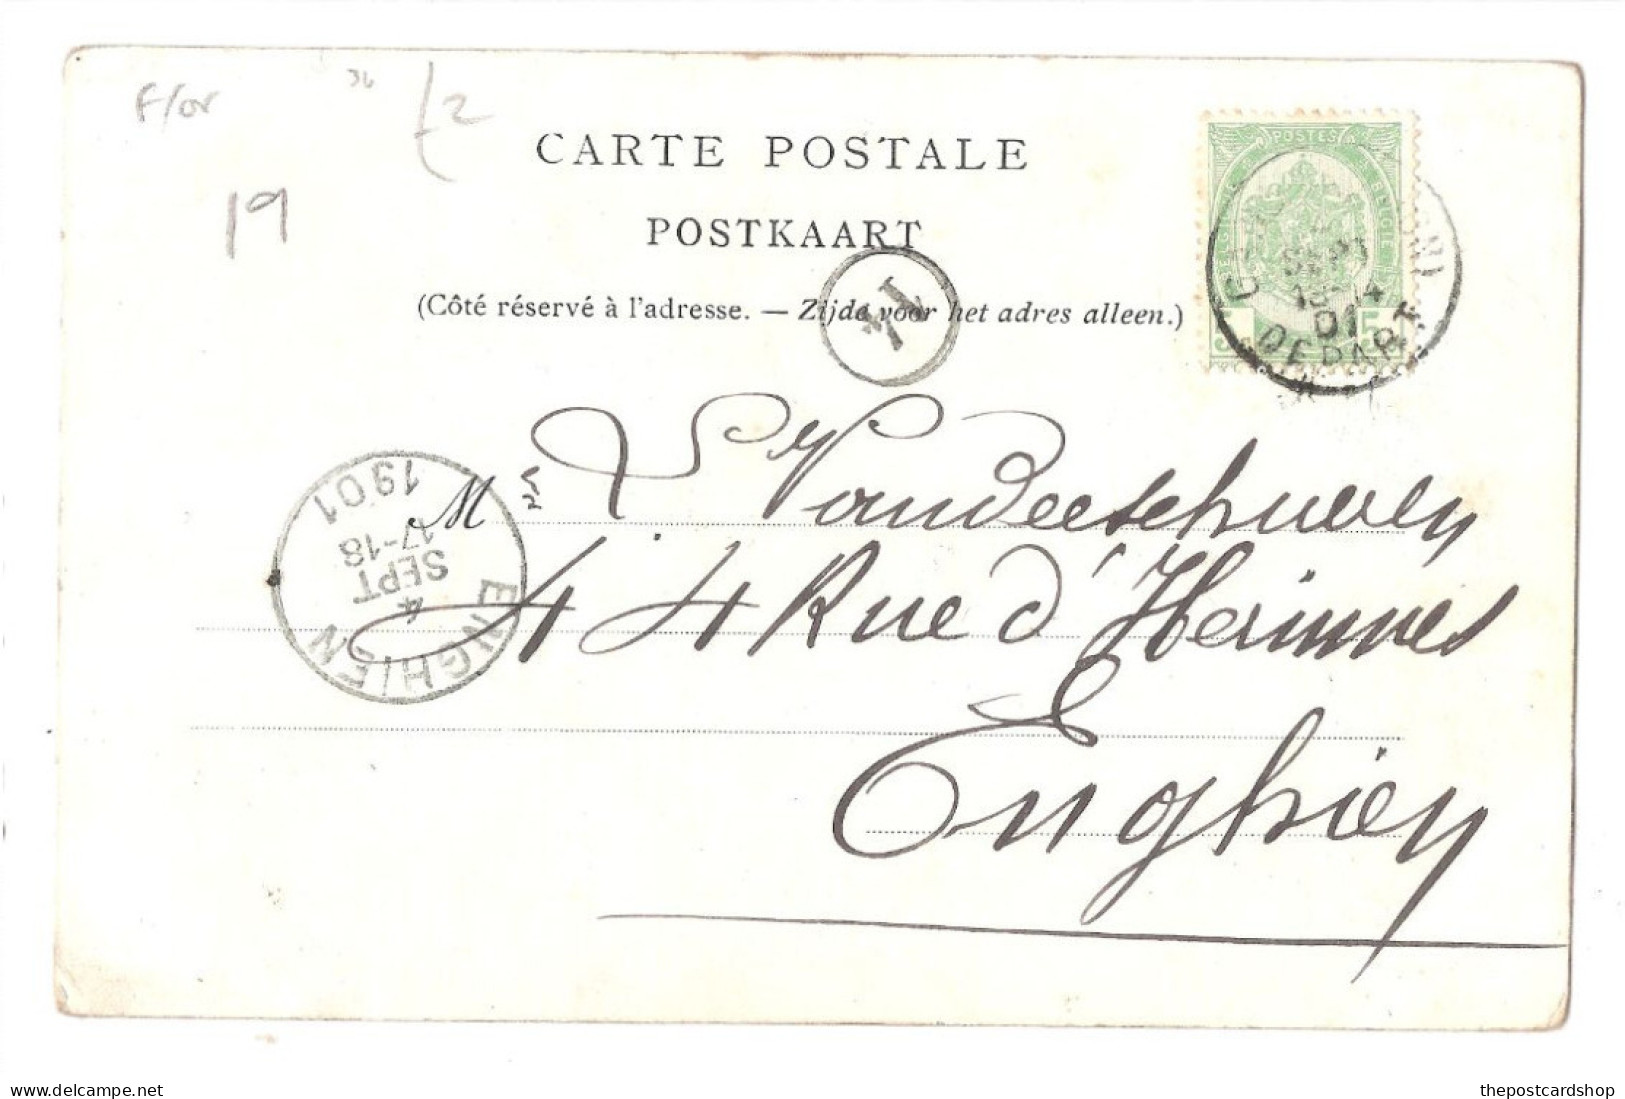 F/or 36 £2
19
CARTE POSTALE
POSTKAART
(Côté réservé à l'adresse. — Zijde voor het adres alleen.)
POSTES
BELGIQUE BELGIE
5 5
SEPT
13-14
01
DEPART
14
ENGHIEN
4
SEPT
17-18
1901
M
44 Rue d'Herinnes
Enghien
delcampe.net
thepostcardshop